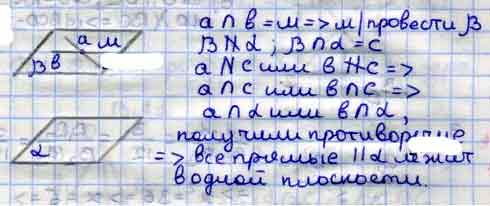 a∩b=м=>м|провести β
β∦α; β∩α=c
a∦c или b∦c=>
a∩c или b∩c=>
a∩α или b∩α,
получили противоречие
=> все прямые ||α лежат
в одной плоскости.
a м
β b
α